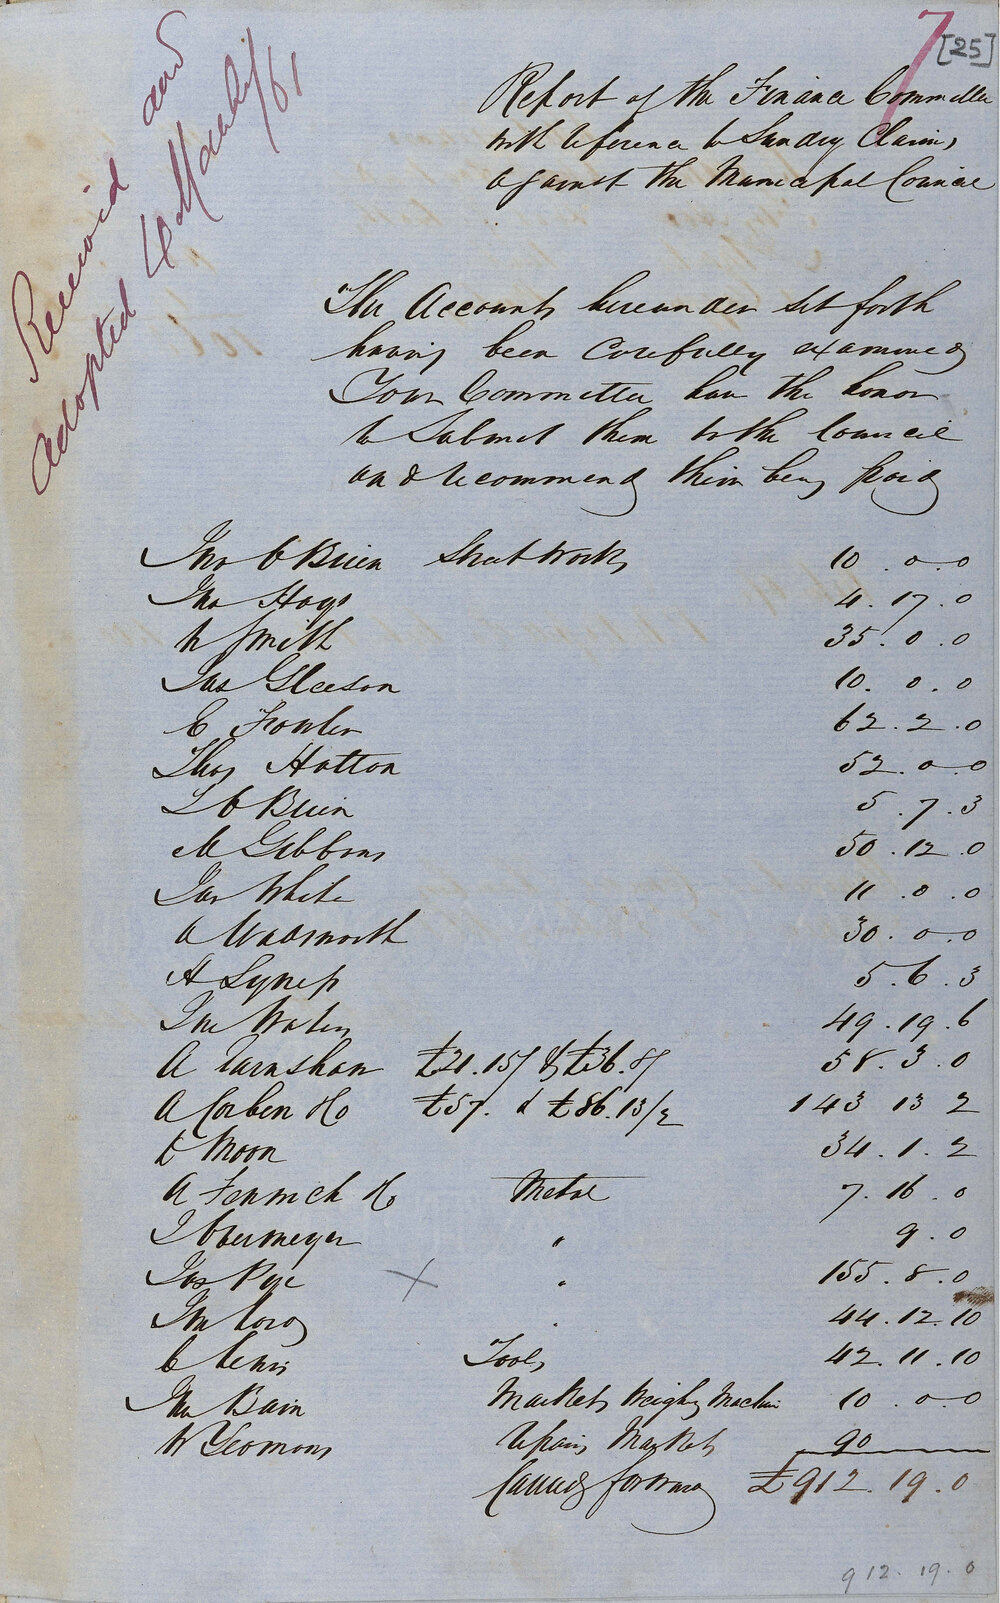 7
[25]
Received and
adopted 4 March/61
Report of the Finance Committee
with reference to Sundry Claims
against the Municipal Council
The Accounts hereunder set forth
having been Carefully examined
Your Committee have the honor
to Submit them to the Council
and recommend their being paid
Jno O'Brien Street Works 10 . 0 . 0
Jno Hays 4 . 17 . 0
W Smith 35 . 0 . 0
Jas Gleeson 10 . 0 . 0
E Fowler 62 . 2 . 0
Thos Hatton 52 . 0 . 0
L O'Brien 5 . 7 . 3
M Gibbons 50 . 12 . 0
Jas White 11 . 0 . 0
A Wadsworth 30 . 0 . 0
A Lynes 5 . 6 . 3
Jno Waters 49 . 19 . 6
A Earnshaw £21.15/ & £36.8/ 58 . 3 . 0
A Corben & Co £57. & £86.13/2 143 13 2
Moon 34 . 1 . 2
A Fenwick & Co Metal 7 . 16 . 0
J Obermeyer " 9 . 0
Jas Pye × " 155 . 8 . 0
44 . 12 . 10
C Lewis Tools 42 . 11 . 10
Jno Bain Markets Weighg Machine 10 . 0 . 0
W Yeomans Repairs Markets 90
Carried forward £912 . 19 . 0
912 . 19 . 0